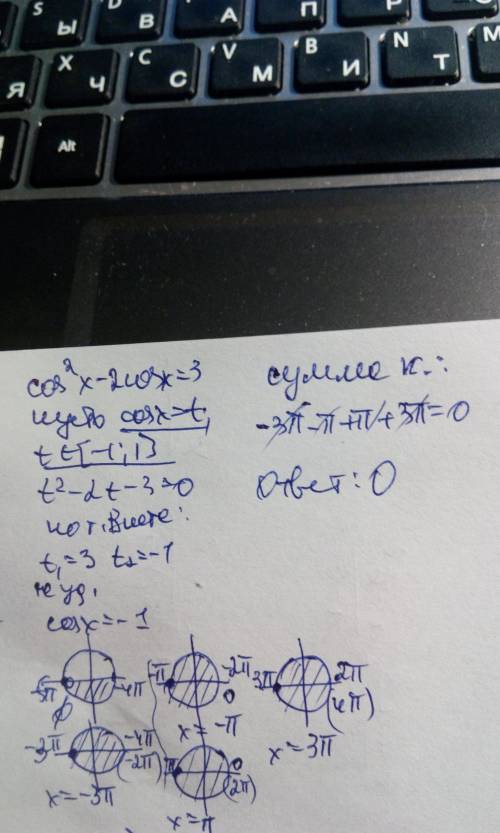 S Ы D В А П Р
Я X Ч C С V М B И N Т M
Alt
cos²x-2cosx=3
пусть cosx=t,
t∈[-1;1]
t²-2t-3=0
по т. Виета:
t₁=3 t₂=-1
не уд.
cosx=-1
сумма к.:
-3π-π+π+3π=0
Ответ: 0
-5π -4π
∅
-π -2π 0
x=-π
3π 2π (4π)
x=3π
-3π -4π (-2π)
x=-3π
π 0 (2π)
x=π